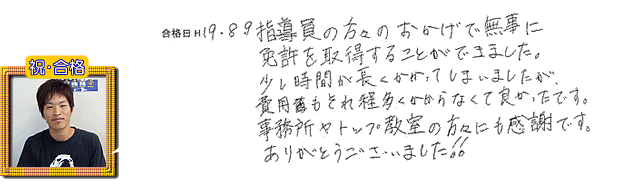 合格日 H19.8.9
指導員の方々のおかげで無事に
免許を取得することができました。
少し時間が長くかかってしまいましたが、
費用面もそれ程多くかからなくて良かったです。
事務所やトップ教室の方々にも感謝です。
ありがとうございました!!
祝・合格